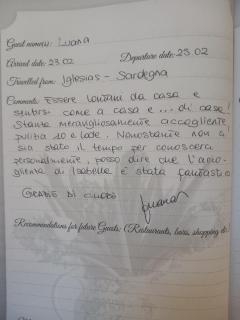 Guest name(s): Luana
Arrival date: 23.02 Departure date: 23.02
Travelled from: Iglesias - Sardegna
Comments: Essere lontani da casa e
sentirsi come a casa e ... di casa!
Stanza meravigliosamente accogliente
pulita 10 e lode. Nonostante non ci
sia stato il tempo per conoscersi
personalmente, posso dire che l'acco-
glienza di Isabella è stata fantastica
GRAZIE DI CUORE
Luana
Recommendations for future Guests: (Restaurants, bars, shopping etc.